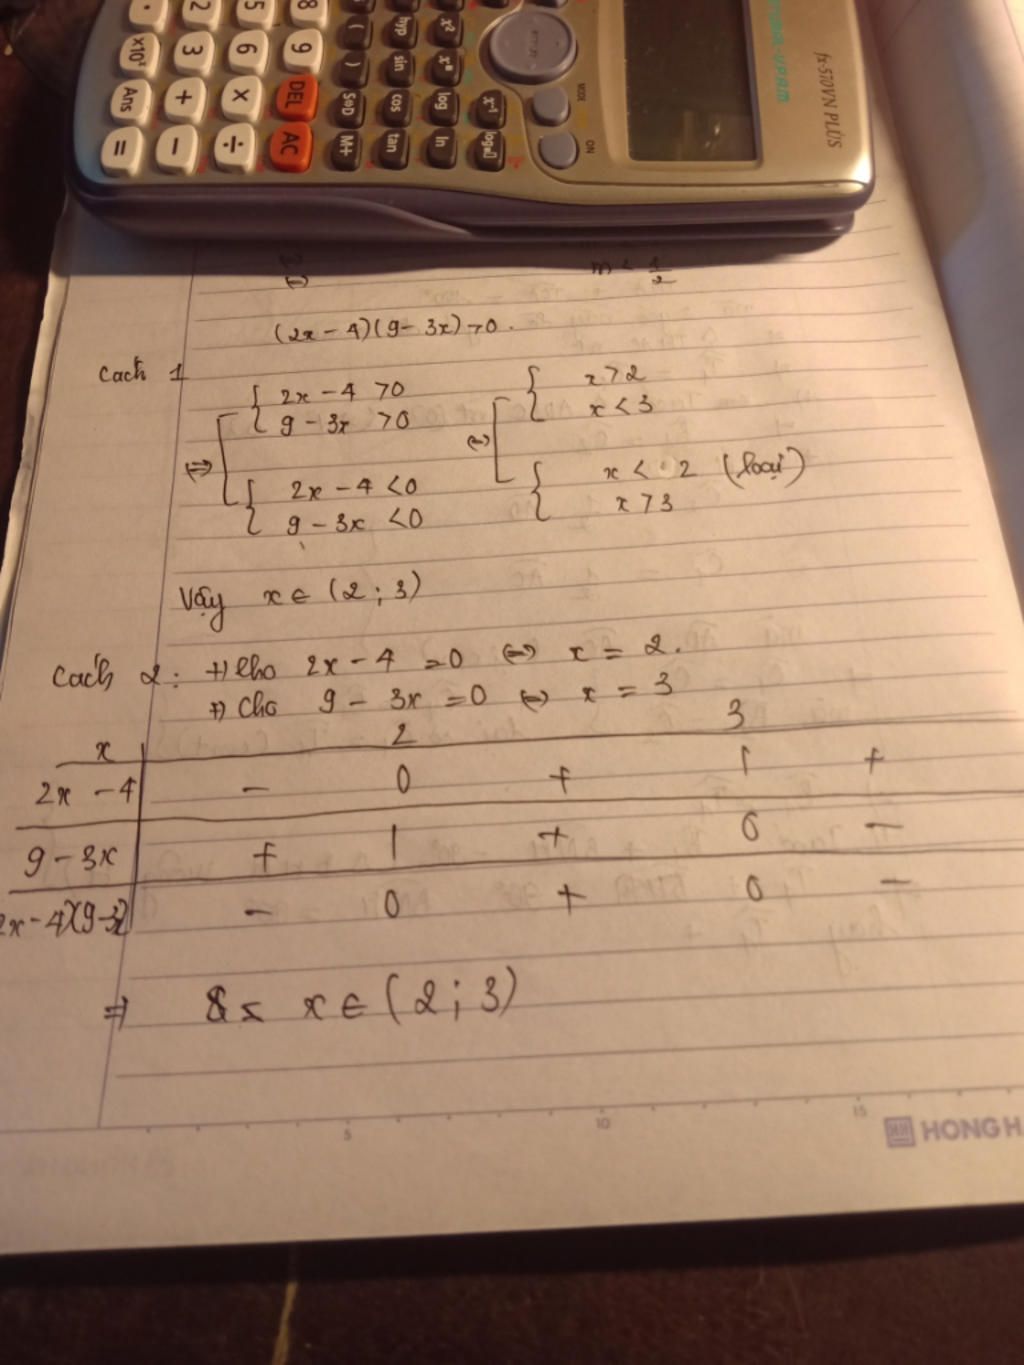 8 5 2 .
9 6 3 x10ˣ
DEL × + Ans
AC ÷ − =
( hyp x²
) sin xⁿ
S⇔D cos log x⁻¹
M+ tan ln log
MODE
ON
fx-570VN PLUS
m < 1/2
(2x - 4)(9 - 3x) > 0.
Cách 1
2x - 4 > 0
9 - 3x > 0
⇔
2x - 4 < 0
9 - 3x < 0
⇔
x > 2
x < 3
x < 2 (loại)
x > 3
Vậy x ∈ (2 ; 3)
Cách 2 : +) Cho 2x - 4 = 0 ⇔ x = 2.
+) Cho 9 - 3x = 0 ⇔ x = 3
x 2 3
2x - 4 - 0 + | +
9 - 3x + | + 0 -
2x - 4)(9 - 3x) - 0 + 0 -
⇒ x ∈ (2 ; 3)
5 10 15
HONG H